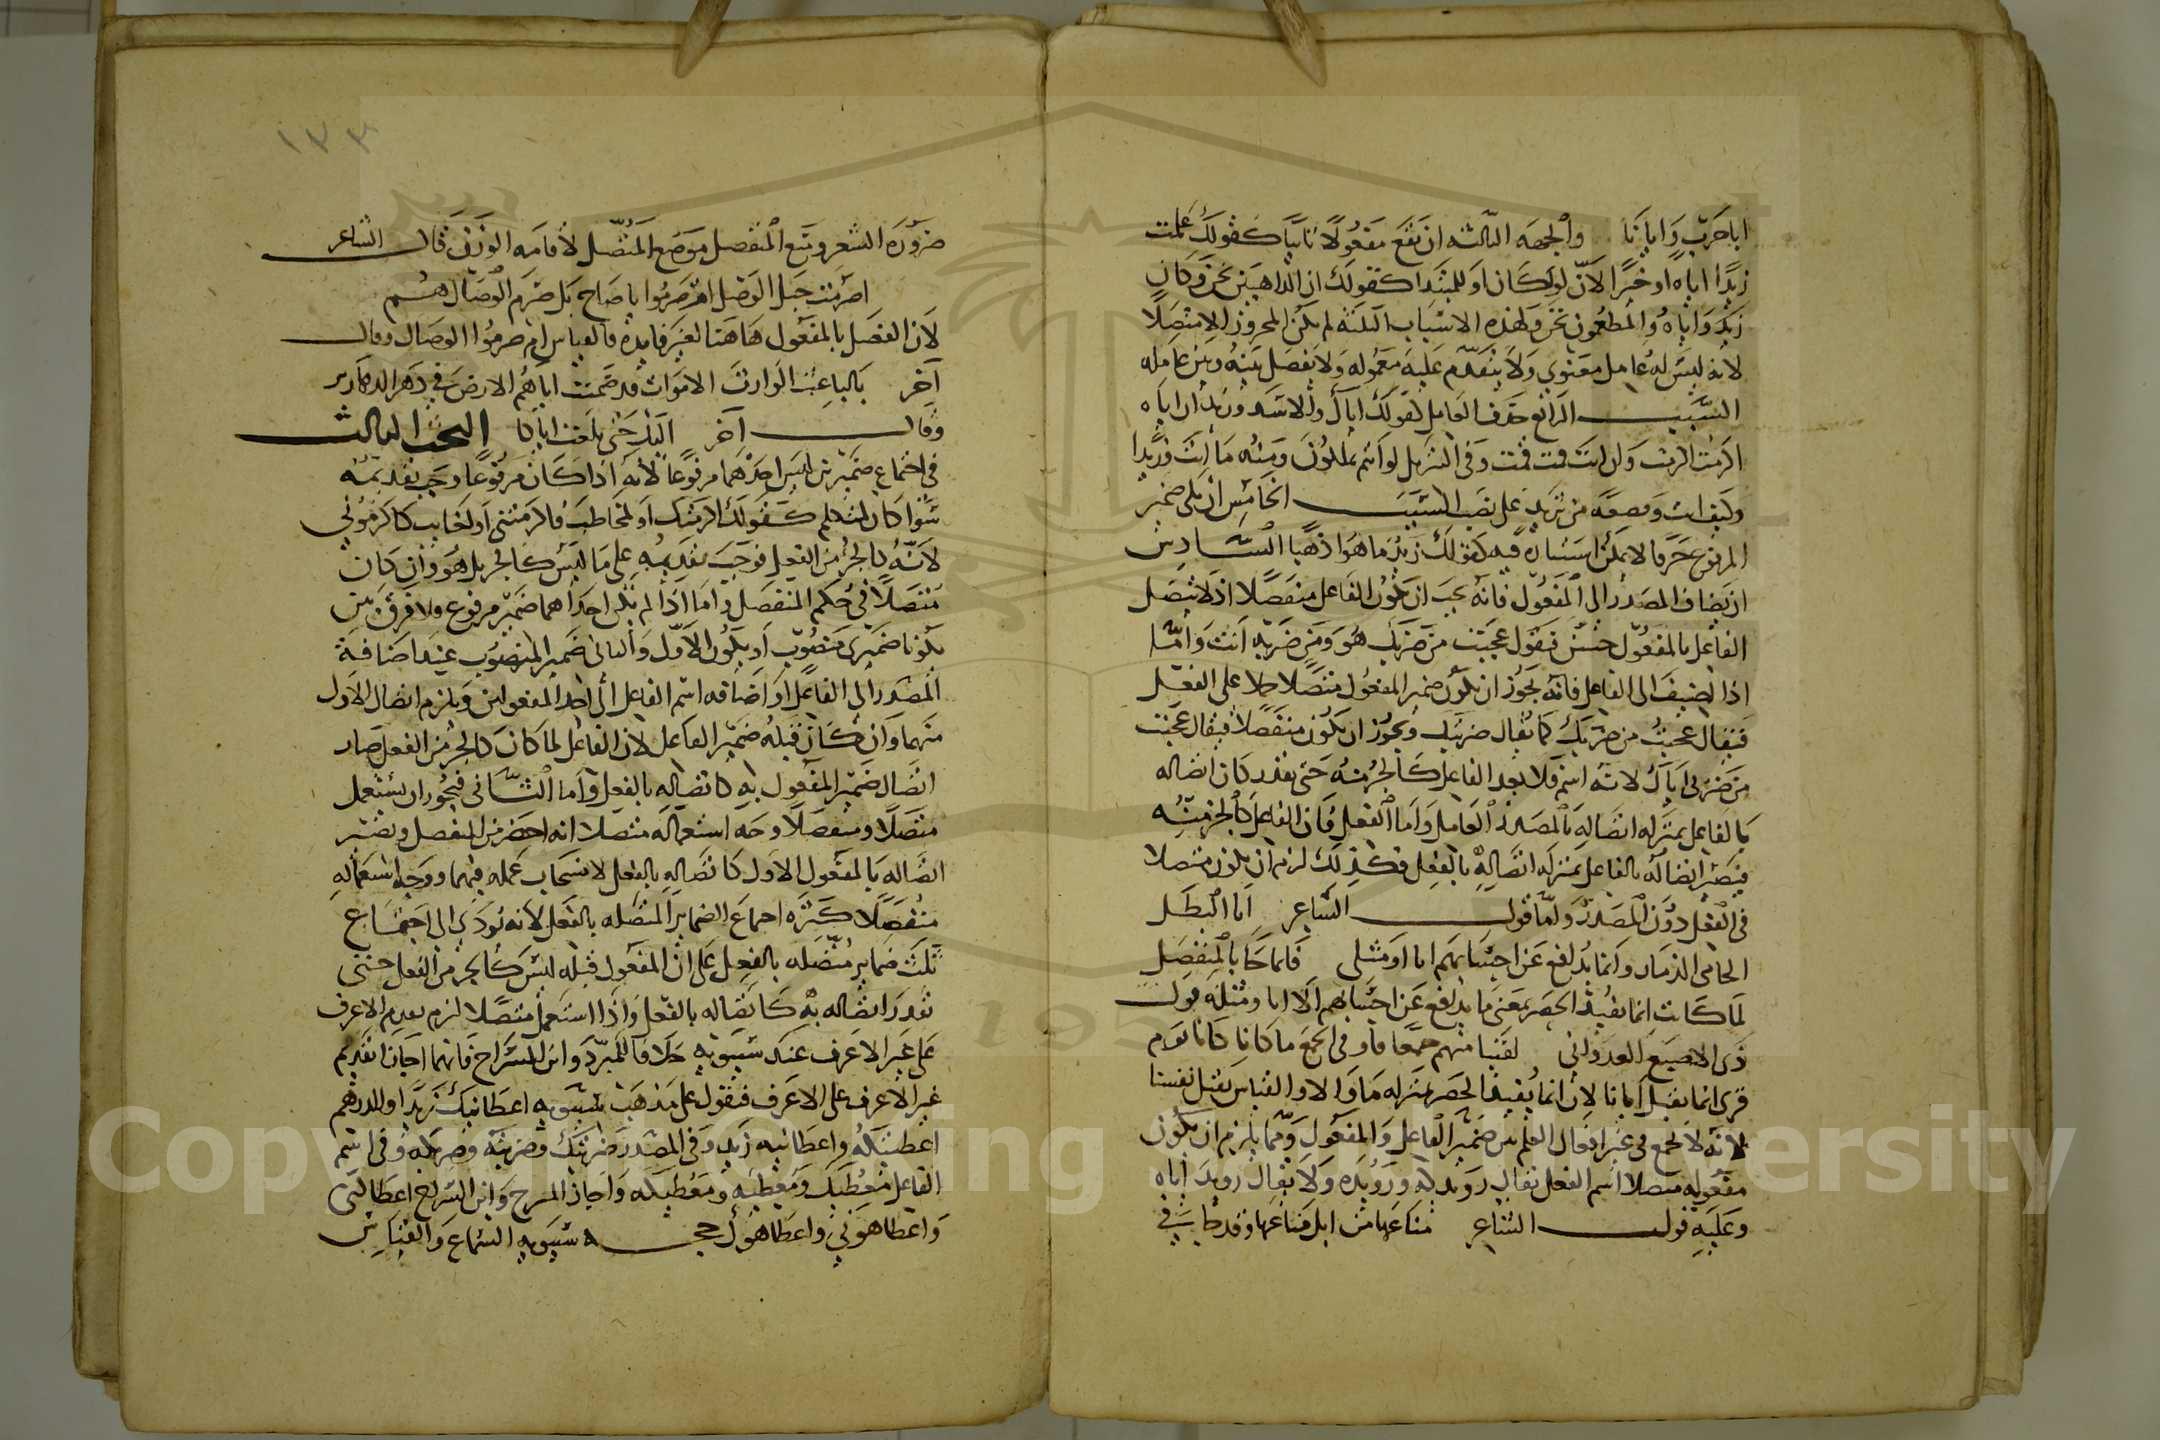 ابا حرب وايانا والجهه الثالثه ان تقع مفعولا ثانيا كقولك علمت
زيدا اياه او خبرا لان او لكان او للمبتدا كقولك ان الذاهبين نحن وكان
زيد واياه والمطعمون نحن ولهذه الاسباب الثلثه لم يكن المجرور الا متصلا
لانه ليس له عامل معنوي ولا يتقدم عليه معموله ولا يفصل بينه وبين عامله
السبب الرابع حذف العامل كقولك اياك والاسد وزيد ان اياه
اكرمت اكرمت وان انت قمت قمت وفي التنزيل لو انتم تملكون ومنه ما انت وزيدا
وكيف انت وقصعه من ثريد على نصب السبب الخامس ان يلي ضمير
المرفوع حرفا لا يمكن استتاره فيه كقولك زيد ما هو اذهبا السادس
ان يضاف المصدر الى المفعول فانه يجب ان يكون الفاعل منفصلا اذ لا يتصل
الفاعل بالمفعول حسن فتقول عجبت من ضربك هو ومن ضربه انت واما
اذا اضيف الى الفاعل فانه يجوز ان يكون ضمير المفعول متصلا حملا على الفعل
فيقال عجبت من ضربك كما يقال ضربتك ويجوز ان يكون منفصلا فيقال عجبت
من ضربي اياك لانه اسم فلا يعد الفاعل كالجزء منه حتى يقدر كان اتصاله
بالفاعل بمنزله اتصاله بالمصدر العامل واما الفعل فان الفاعل كالجزء منه
فيصير اتصاله بالفاعل بمنزله اتصاله بالفعل فكذلك لزم ان يكون متصلا
في الفعل دون المصدر ولما قول الشاعر انا البطل
الحامي الذمار وانما يدافع عن احسابهم انا او مثلي فانما جا بالمنفصل
لما كانت انما تفيد الحصر بمعنى ما يدافع عن احسابهم الا انا ومثله قول
ذي الاصبع العدواني لقينا منهم جمعا فاوفى الجمع ما كانا كانا يوم
قرى انما نقتل ايانا لان انما يفيد الحصر بمنزله ما والا والقياس نقتل نفسنا
لانه لا يجمع في غير افعال العلم بين ضمير الفاعل والمفعول ومما يلزم ان يكون
مفعوله متصلا اسم الفعل يقال رويدكه ورويده ولا يقال رويد اياه
وعليه قول الشاعر مناعها من ابل مناعها وقد جا في
١٣٣
ضرورة الشعر وضع المنفصل موضع المتصل لاقامه الوزن قال الشاعر
اصرمت حبل الوصل ام صرموا يا صاح بل صرم الوصال هم
لان الفصل بالمفعول هاهنا لغير فايده فالقياس ام صرموا الوصال وقال
آخر بالباعث الوارث الاموات قد ضمنت اياهم الارض في دهر الدهارير
وقال آخر اليك حتى بلغت اياكا البحث الثالث
في اجتماع ضميرين ليس احدهما مرفوعا لانه اذا كان مرفوعا وجب تقديمه
سوا كان لمتكلم كقولك اكرمتك او لمخاطب فاكرمتني او لغايب كاكرموني
لانه كالجزء من الفعل فوجب تقديمه على ما ليس كالجزء بل هو وان كان
متصلا في حكم المنفصل واما اذا لم يكن احدهما ضمير مرفوع ولا فرق بين
يكونا ضميري منصوب او يكون الاول والثاني ضمير المنصوب عند اضافة
المصدر الى الفاعل او اضافه اسم الفاعل الى احد المفعولين ويلزم اتصال الاول
منهما وان كان قبله ضمير الفاعل لان الفاعل لما كان كالجزء من الفعل صار
اتصال ضمير المفعول به كاتصاله بالفعل واما الثاني فيجوز ان يستعمل
متصلا ومنفصلا وجه استعماله متصلا انه اخصر من المنفصل ويصير
اتصاله بالمفعول الاول كاتصاله بالفعل لانسحاب عمله فيهما ووجه استعماله
منفصلا كثره اجماع الضماير المتصله بالفعل لانه يودي الى اجتماع
ثلث ضماير متصله بالفعل على ان المفعول قبله ليس كالجزء من الفعل حتى
تقدر اتصاله به كاتصاله بالفعل واذا استعمل متصلا لزم تقديم الاعرف
على غير الاعرف عند سيبويه خلافا للمبرد وابن السراج فانهما اجازا تقديم
غير الاعرف على الاعرف فتقول على مذهب سيبويه اعطانيك زيدا والدرهم
اعطيتكه واعطانيه زيد وفي المصدر ضربتك وضربيه وضربكه وفي اسم
الفاعل معطيك ومعطيه ومعطيكه واجاز المبرد وابن السراج اعطاكني
واعطاهوني واعطاهوك حجه سيبويه السماع والقياس